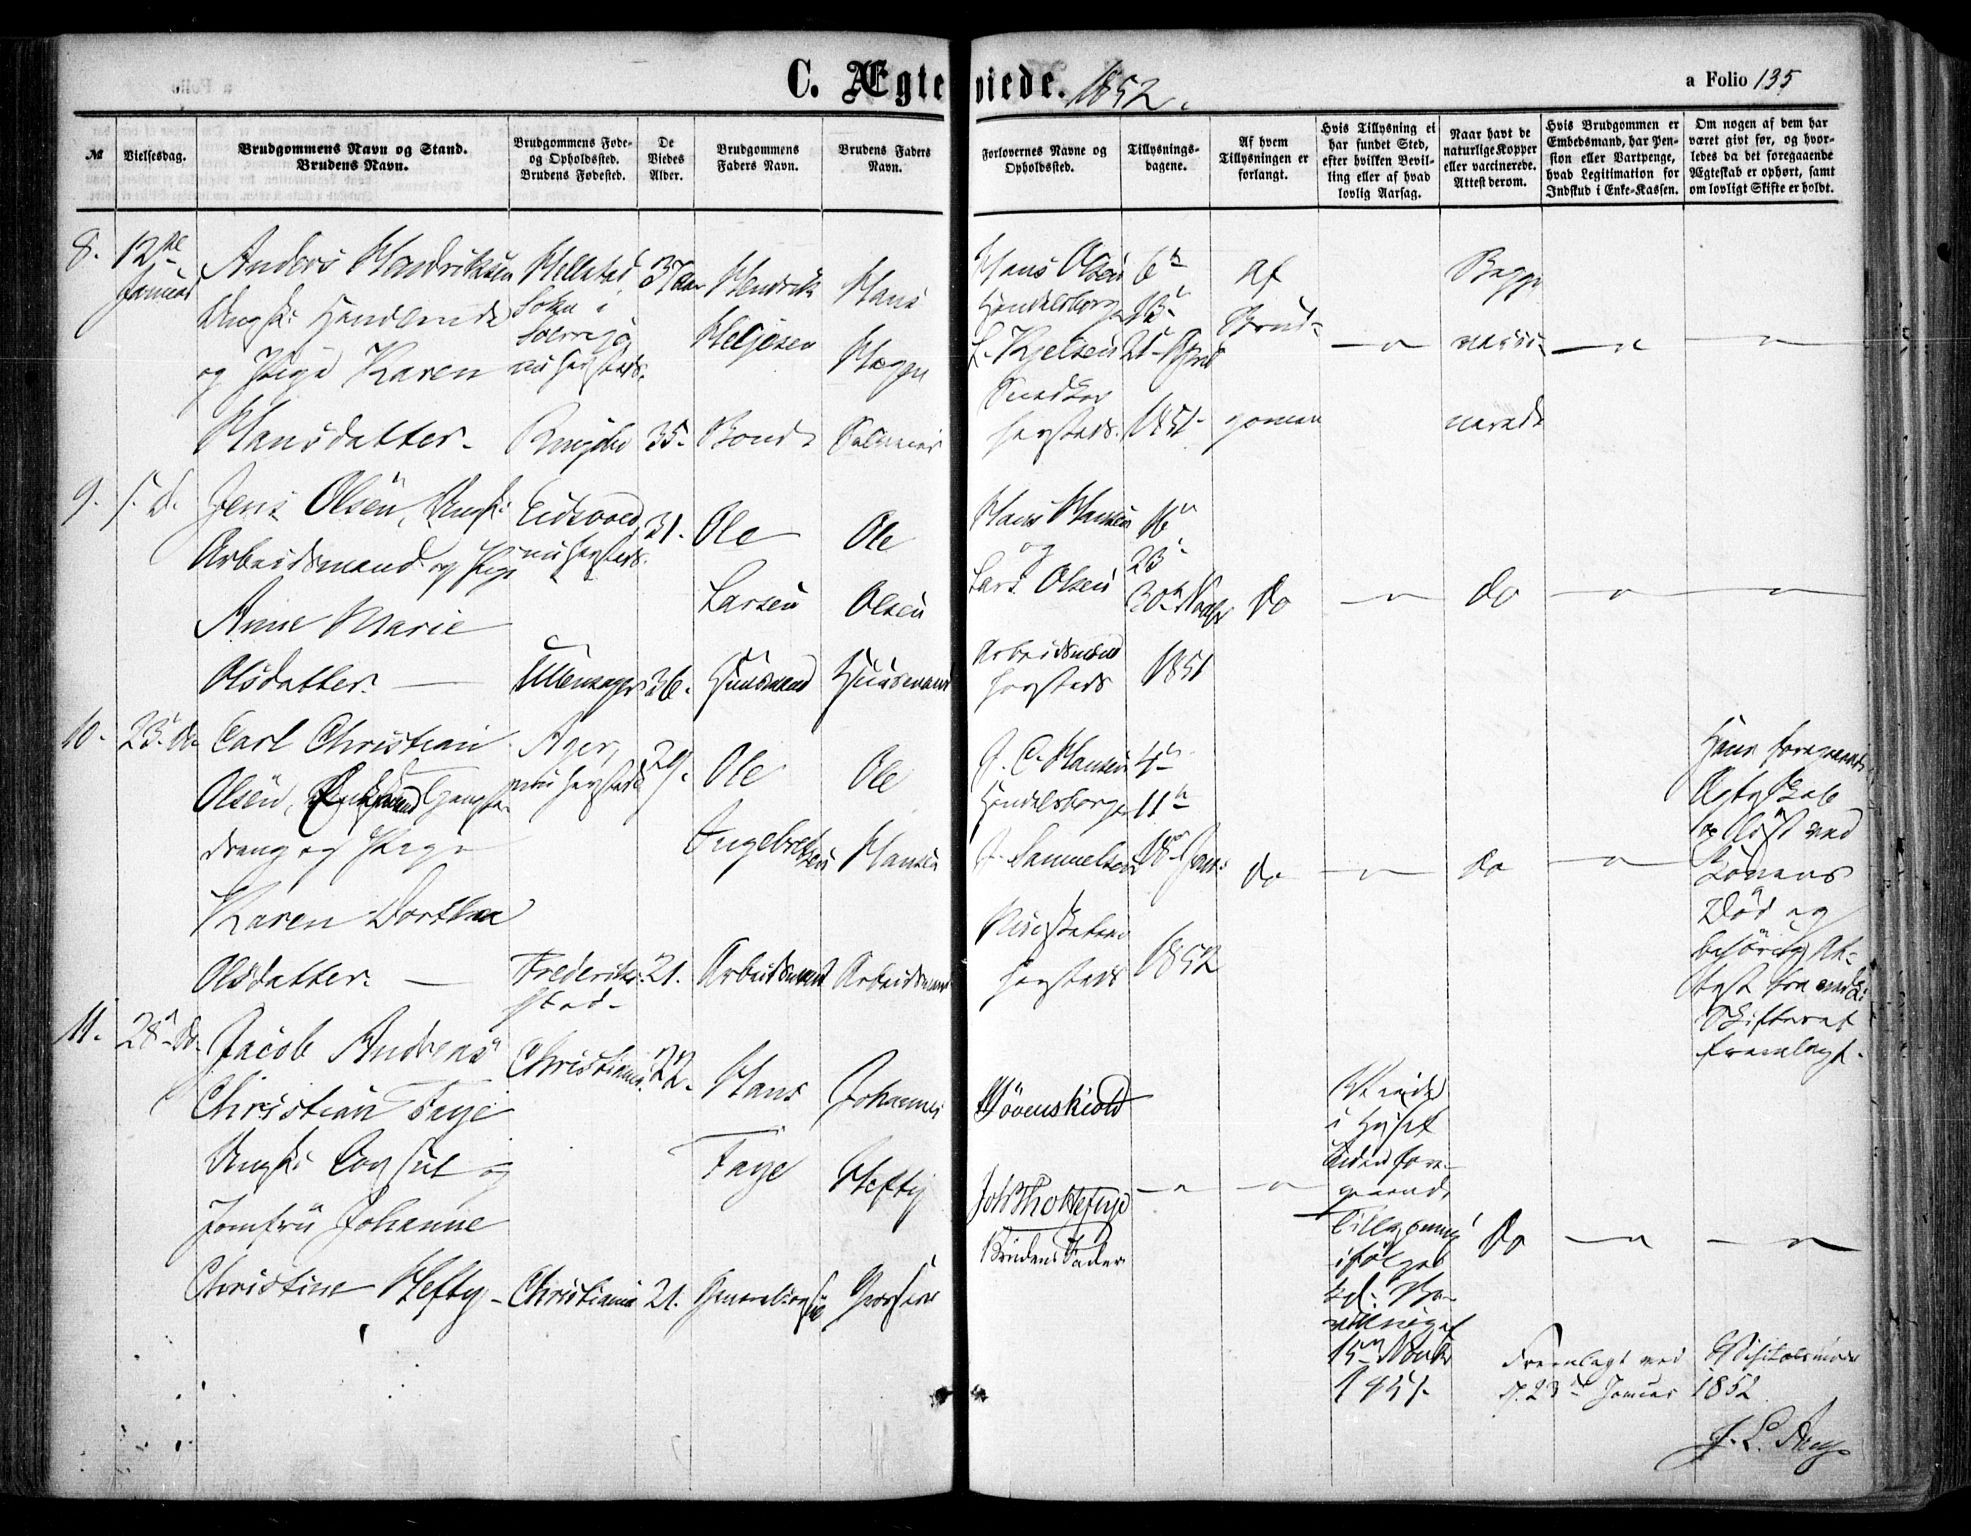 C. Ægteviede. 1852.
a Folio 135
№
Vielsesdag.
Brudgommens Navn og Stand.
Brudens Navn.
Brudgommens Føde-
og Opholdssted.
Brudens Fødested.
De
Viedes
Alder.
Brudgommens
Faders Navn.
Brudens Faders
Navn.
Forlovernes Navne og
Opholdssted.
Tillysnings-
dagene.
Af hvem
Tillysningen er
forlangt.
Hvis Tillysning ei
har fundet Sted,
efter hvilken Bevil-
ling eller af hvad
lovlig Aarsag.
Naar havt de
naturlige Kopper
eller vaccinerede.
Attest derom.
Hvis Brudgommen er
Embedsmand, har Pen-
sion eller Vartpenge,
hvad Legitimation for
Indskud i Enke-Kassen.
Om nogen af dem har
været givt før, og hvor-
ledes da det foregaaende
Ægteskab er ophørt, samt
om lovligt Skifte er holdt.
8.
12te
Januar
Anders Hendriksen
Ungk. Handlende
og Pige Karen
Hansdatter.
Sogn i
Sverrig,
nu her steds.
Ringebu
37 aar
35.
Hendrik
Bonde
Hans
Hans Olsen
Handelsborger
L. Kjelsen
Snedker
hersteds.
6te
13.
21.
1851.
af
Brud-
gomen
Begge
vacci-
nerede
9.
Jens Olsen, Ungk.
Arbeidsmand og Pige
Anne Marie
Olsdatter.
Eidsvold,
nu hersteds.
Ullensager
31.
36.
Ole
Larsen
Huusmand
Ole
Olsen
Huusmand
Hans Hansen
og
Lars Olsen
Arbeidsmænd
hersteds
16
23
30
1851
do
do
10.
23. do.
Carl Christian
Olsen, Enkemand
dreng og Pige
Karen Dorthea
Olsdatter.
Ager,
nu hersteds
Frederik-
stad.
29.
21.
Ole
Ingebretsen
Arbeidsmand
Ole
Hansen
Arbeidsmand
J. C. Hansen
Handelsborger
J. Samuelsen
hersteds
4de
11te
18 Janr.
1852
do
do
Hans foregaaende
Ægteskab
opløst ved
Konens
Død og
behørig At-
test fra
Skifteret
fremlagt.
11.
28. do.
Jacob Andreas
Christian Faye
Ungk. Consul og
Jomfru Johanne
Christine Hefty.
Christiania.
Christiania
22.
21.
Hans
Faye
Johannes
Hefty
Grosserer
Løvenskiold
Joh Tho Heftye
Brudens Fader
Viede
i Huset
uden fore-
gaaende
Tillysning
ifølge
kgl. Be-
villing af
15de Novbr
1851.
do
Fremlagt ved Visitatsmøde
d. 23de Januar 1852